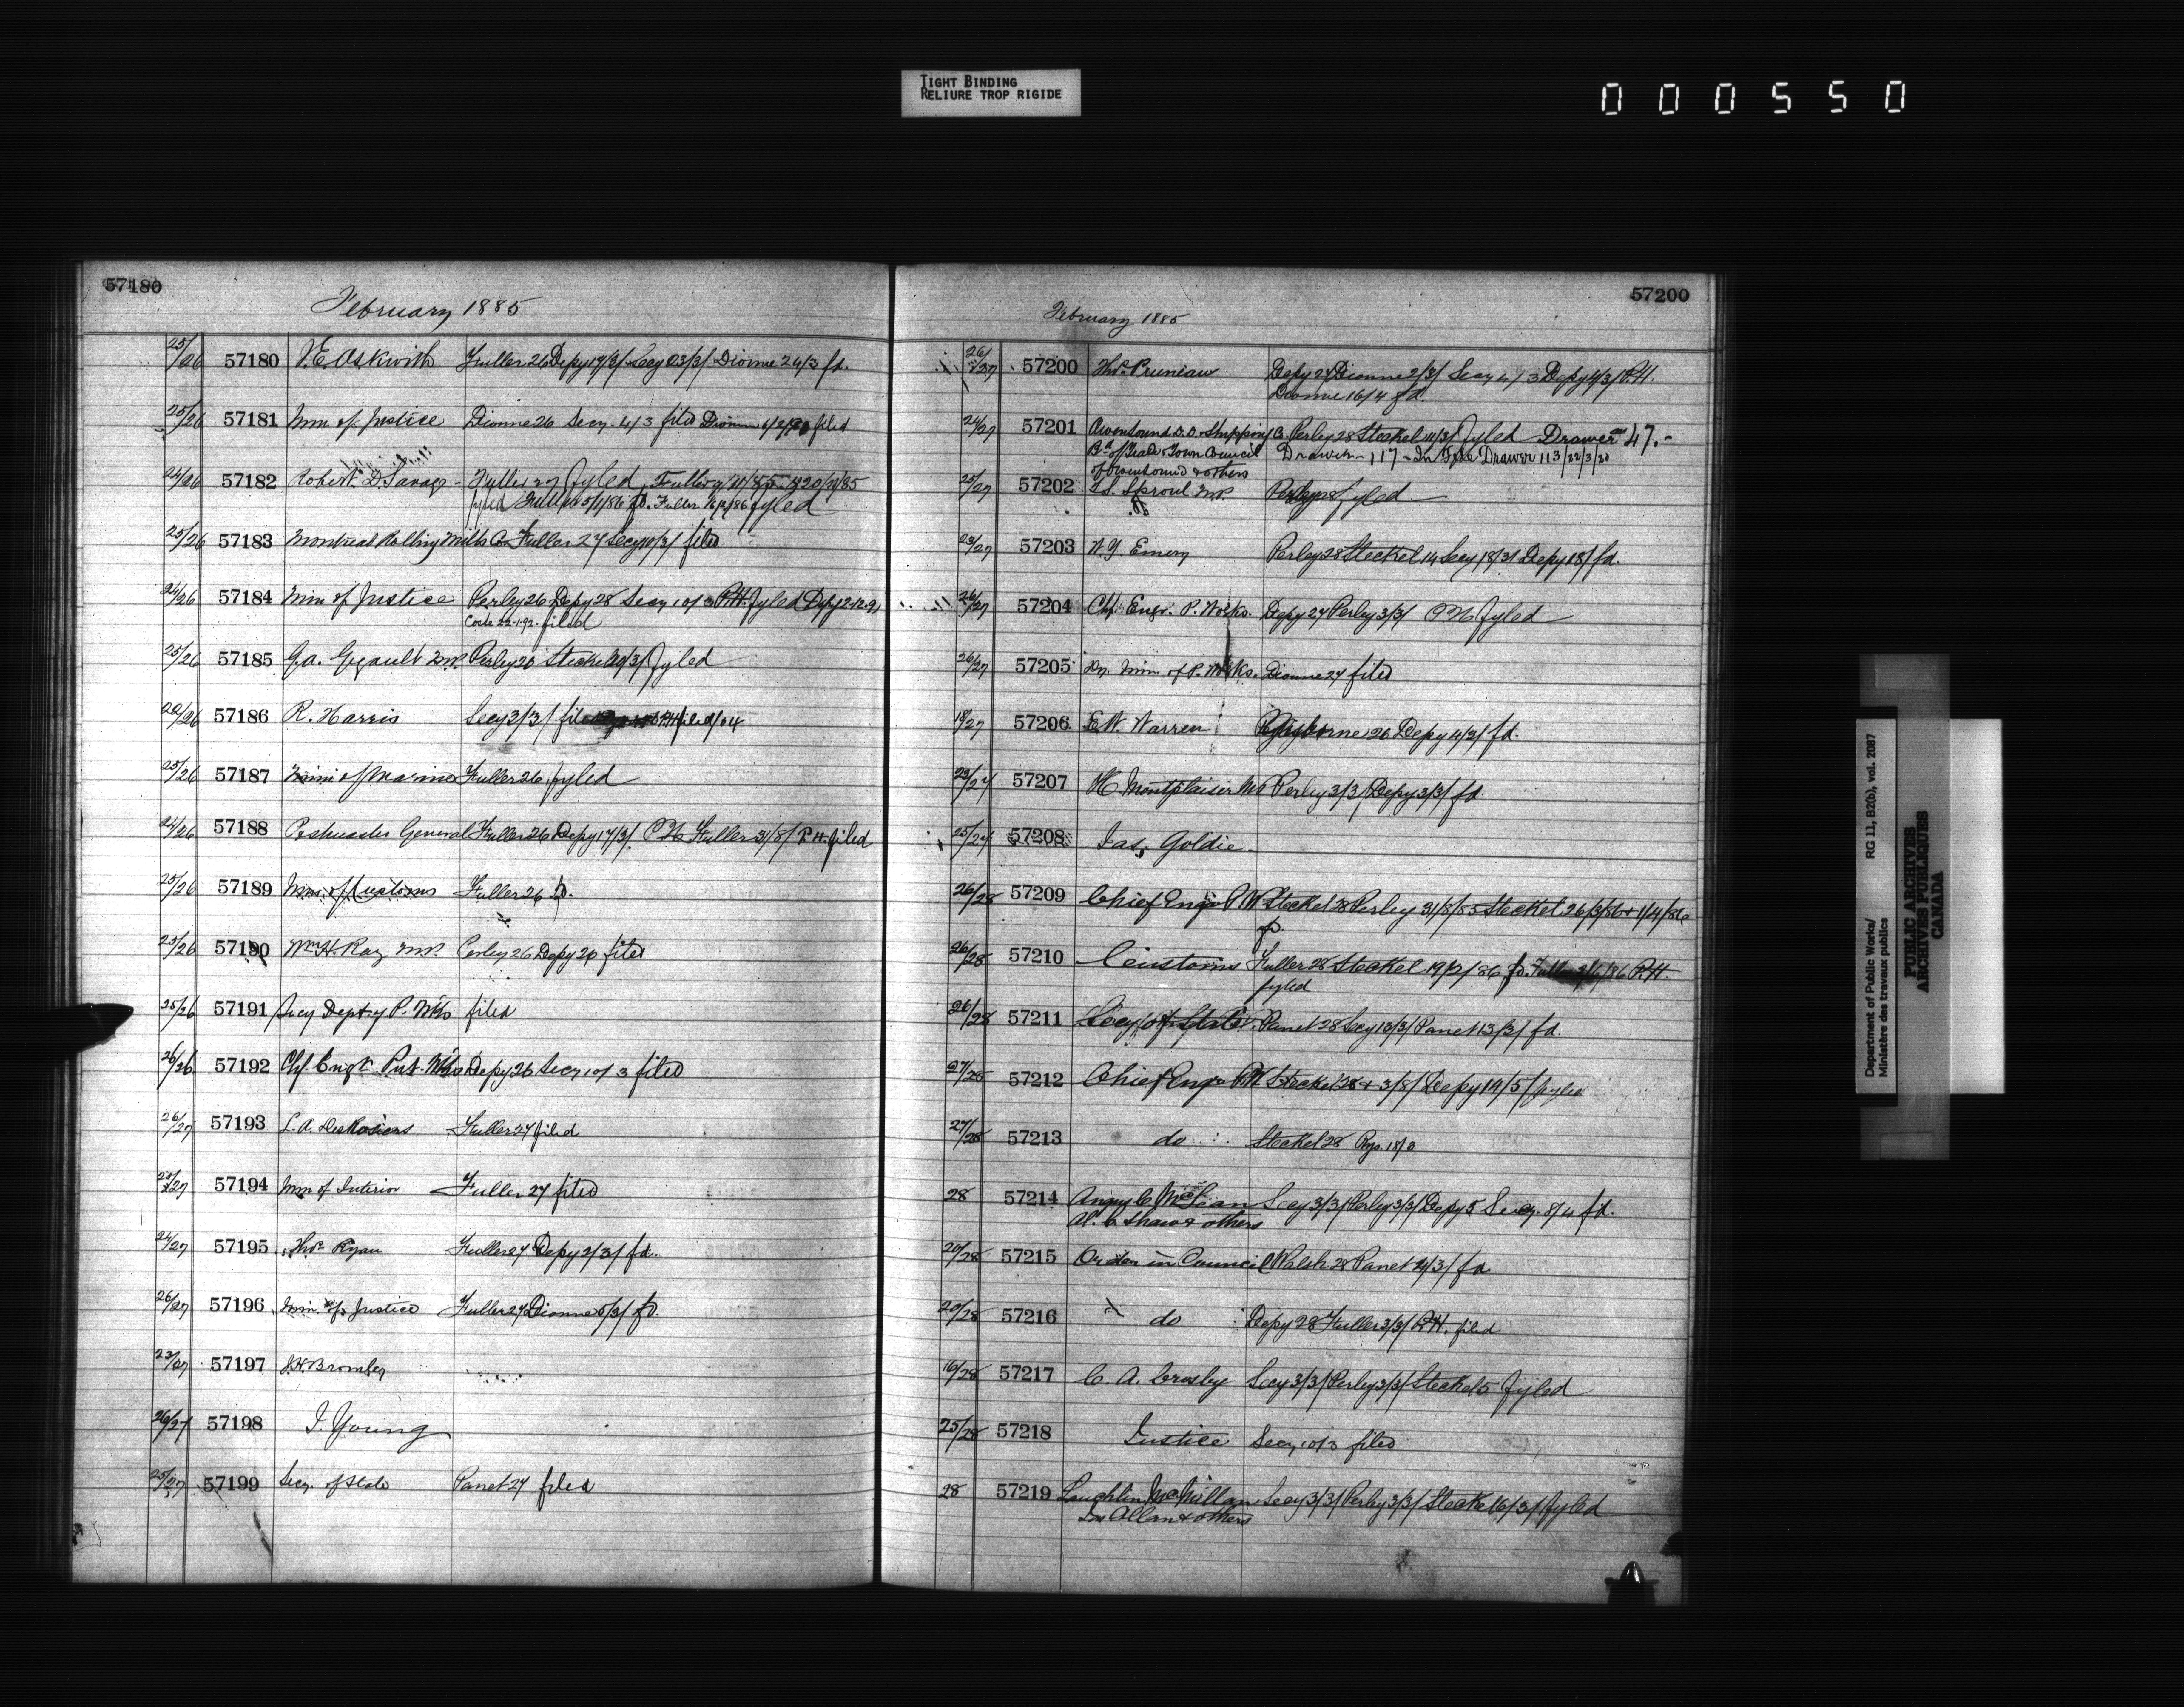 TIGHT BINDING
RELIURE TROP RIGIDE
000550
57180
February 1885
25/26 57180 J.E. Askwith Fuller 26 Depy 19/3/ Secy 23/3/ Dionne 24/3 fd.
25/26 57181 Min. of Justice Dionne 26 Secy. 4/3 filed Dionne filed
24/26 57182 Robert D. Savage Fuller 27 fyled, Fuller 20/11/85
fyled Fuller 5/1/86 fd. Fuller 16/2/86 fyled
25/26 57183 Montreal Rolling Mills Co Fuller 27 Secy 10/3/ filed
24/26 57184 Min of Justice Perley 26 Depy 28 Secy 10/3 P.H. fyled Depy 2-12-91
Coste 22-1-92 filed
25/26 57185 G.A. Gigault M.P. Perley 26 Steckel 19/3/ fyled
22/26 57186 R. Harris Secy 3/3/ filed
25/26 57187 Min of Marine Fuller 26 fyled
24/26 57188 Postmaster General Fuller 26 Depy 17/3/ P.H. Fuller 31/8/ P.H. filed
25/26 57189 Min. of Customs Fuller 26 fd.
25/26 57190 Wm H. Ray M.P. Perley 26 Depy 26 filed
25/26 57191 Secy Dept of P. Wks filed
26/26 57192 Chf. Engr. Pub. Wks Depy 26 Secy 10/3 filed
26/27 57193 L.A. DesRosiers Fuller 27 filed
25/27 57194 Min of Interior Fuller 27 filed
24/27 57195 Thos. Ryan Fuller 27 Depy 2/3/ fd.
26/27 57196 Min. of Justice Fuller 27 Dionne 5/3/ fd.
23/27 57197 J.H. Bromley
26/27 57198 J. Young
25/27 57199 Secy. of State Panet 27 filed
57200
February 1885
26/27 57200 Thos. Pruneau Depy 27 Dionne 2/3/ Secy 4/3 Depy 4/3/ P.H.
Dionne 16/4 fd.
24/27 57201 Owen Sound D.D. & Shipping Co. Perley 28 Steckel 11/3/ fyled Drawer 47.-
Bd of Trade & Town Council Drawer - 117 - In File Drawer 113/22/3/20
of Owen Sound & others
25/27 57202 T.S. Sproul M.P. Perley 28 fyled
23/27 57203 Emery Perley 28 Steckel 14 Secy 18/3/ Depy 18/ fd.
26/27 57204 Chf. Engr. P. Works. Depy 27 Perley 3/3/ P.H. fyled
26/27 57205 Dy. Min of P. Works. Dionne 27 filed
18/27 57206 E.W. Warren Gisborne 26 Depy 4/3/ fd.
23/27 57207 H. Montplaisir MP Perley 3/3/ Depy 3/3/ fd.
25/27 57208 Jas. Goldie
26/28 57209 Chief Engr P.W. Steckel 28 Perley 31/8/85 Steckel 26/3/86 + 1/4/86
fd.
26/28 57210 Customs Fuller 28 Steckel 19/2/86 fd. Fuller /86 P.H.
fyled
26/28 57211 Secy of State Panet 28 Secy 13/3/ Panet 13/3/ fd.
27/28 57212 Chief Engr P.W. Steckel 28 + 3/8/ Depy 19/5/ fyled
27/28 57213 do Steckel 28
28 57214 Angus C McLean Secy 3/3/ Perley 3/3/ Depy 5 Secy. 8/4 fd.
Al. C. Shaw & others
20/28 57215 Order in Council Walsh 28 Panet 2/3/ fd
20/28 57216 do Depy 28 Fuller 3/3/ P.H. filed
16/28 57217 C. A. Crosby Secy 3/3/ Perley 3/3/ Steckel 5 fyled
25/28 57218 Justice Secy 10/3 filed
28 57219 Lauchlin McMillan Secy 3/3/ Perley 3/3/ Steckel 6/3/ fyled
Allan & others
Department of Public Works/ RG 11, B2(b), vol. 2087
Ministère des travaux publics
PUBLIC ARCHIVES
ARCHIVES PUBLIQUES
CANADA